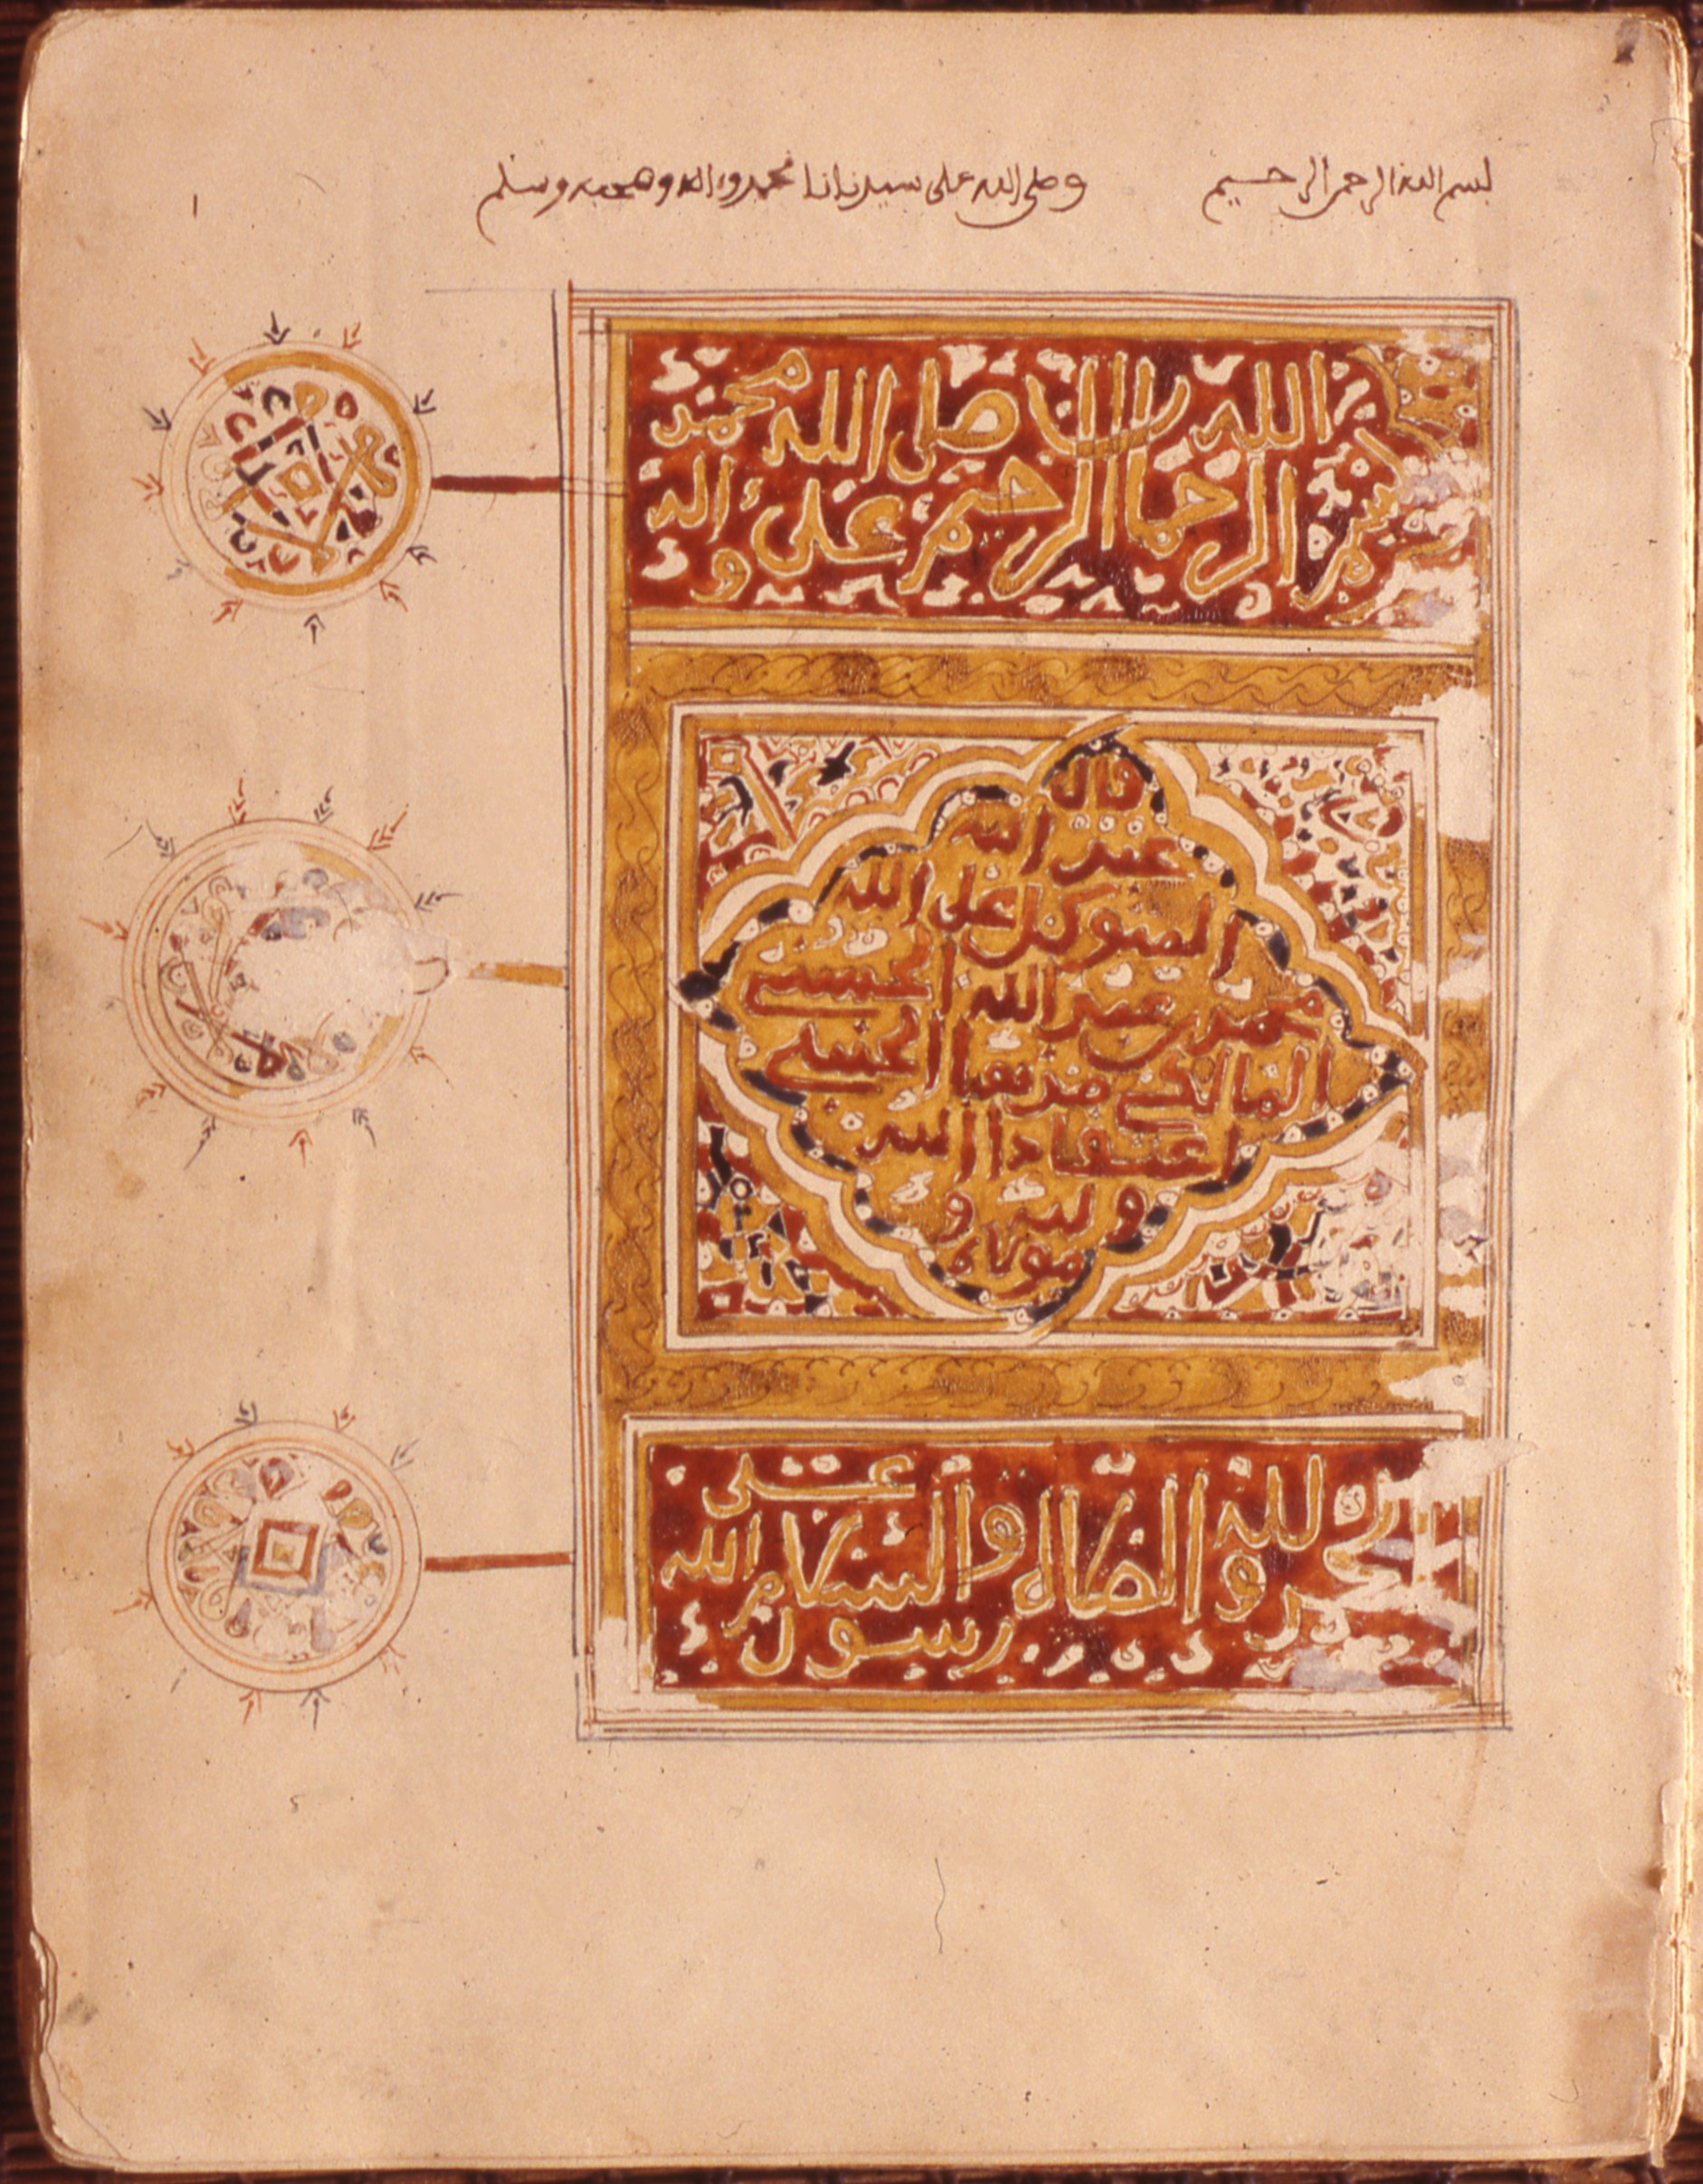 بسم الله الرحمن الرحيم وصلى الله على سيدنا محمد واله وصحبه وسلم
بسم الله الرحمان الرحيم صلى الله على محمد
و اله
قال
عبد الله
المتوكل على الله
محمد بن عبد الله الحسني
المالكي مذهبا الحنبلي
اعتقادا الله
وليه و
مولاه
الحمد لله والصلاة والسلام على
رسول الله